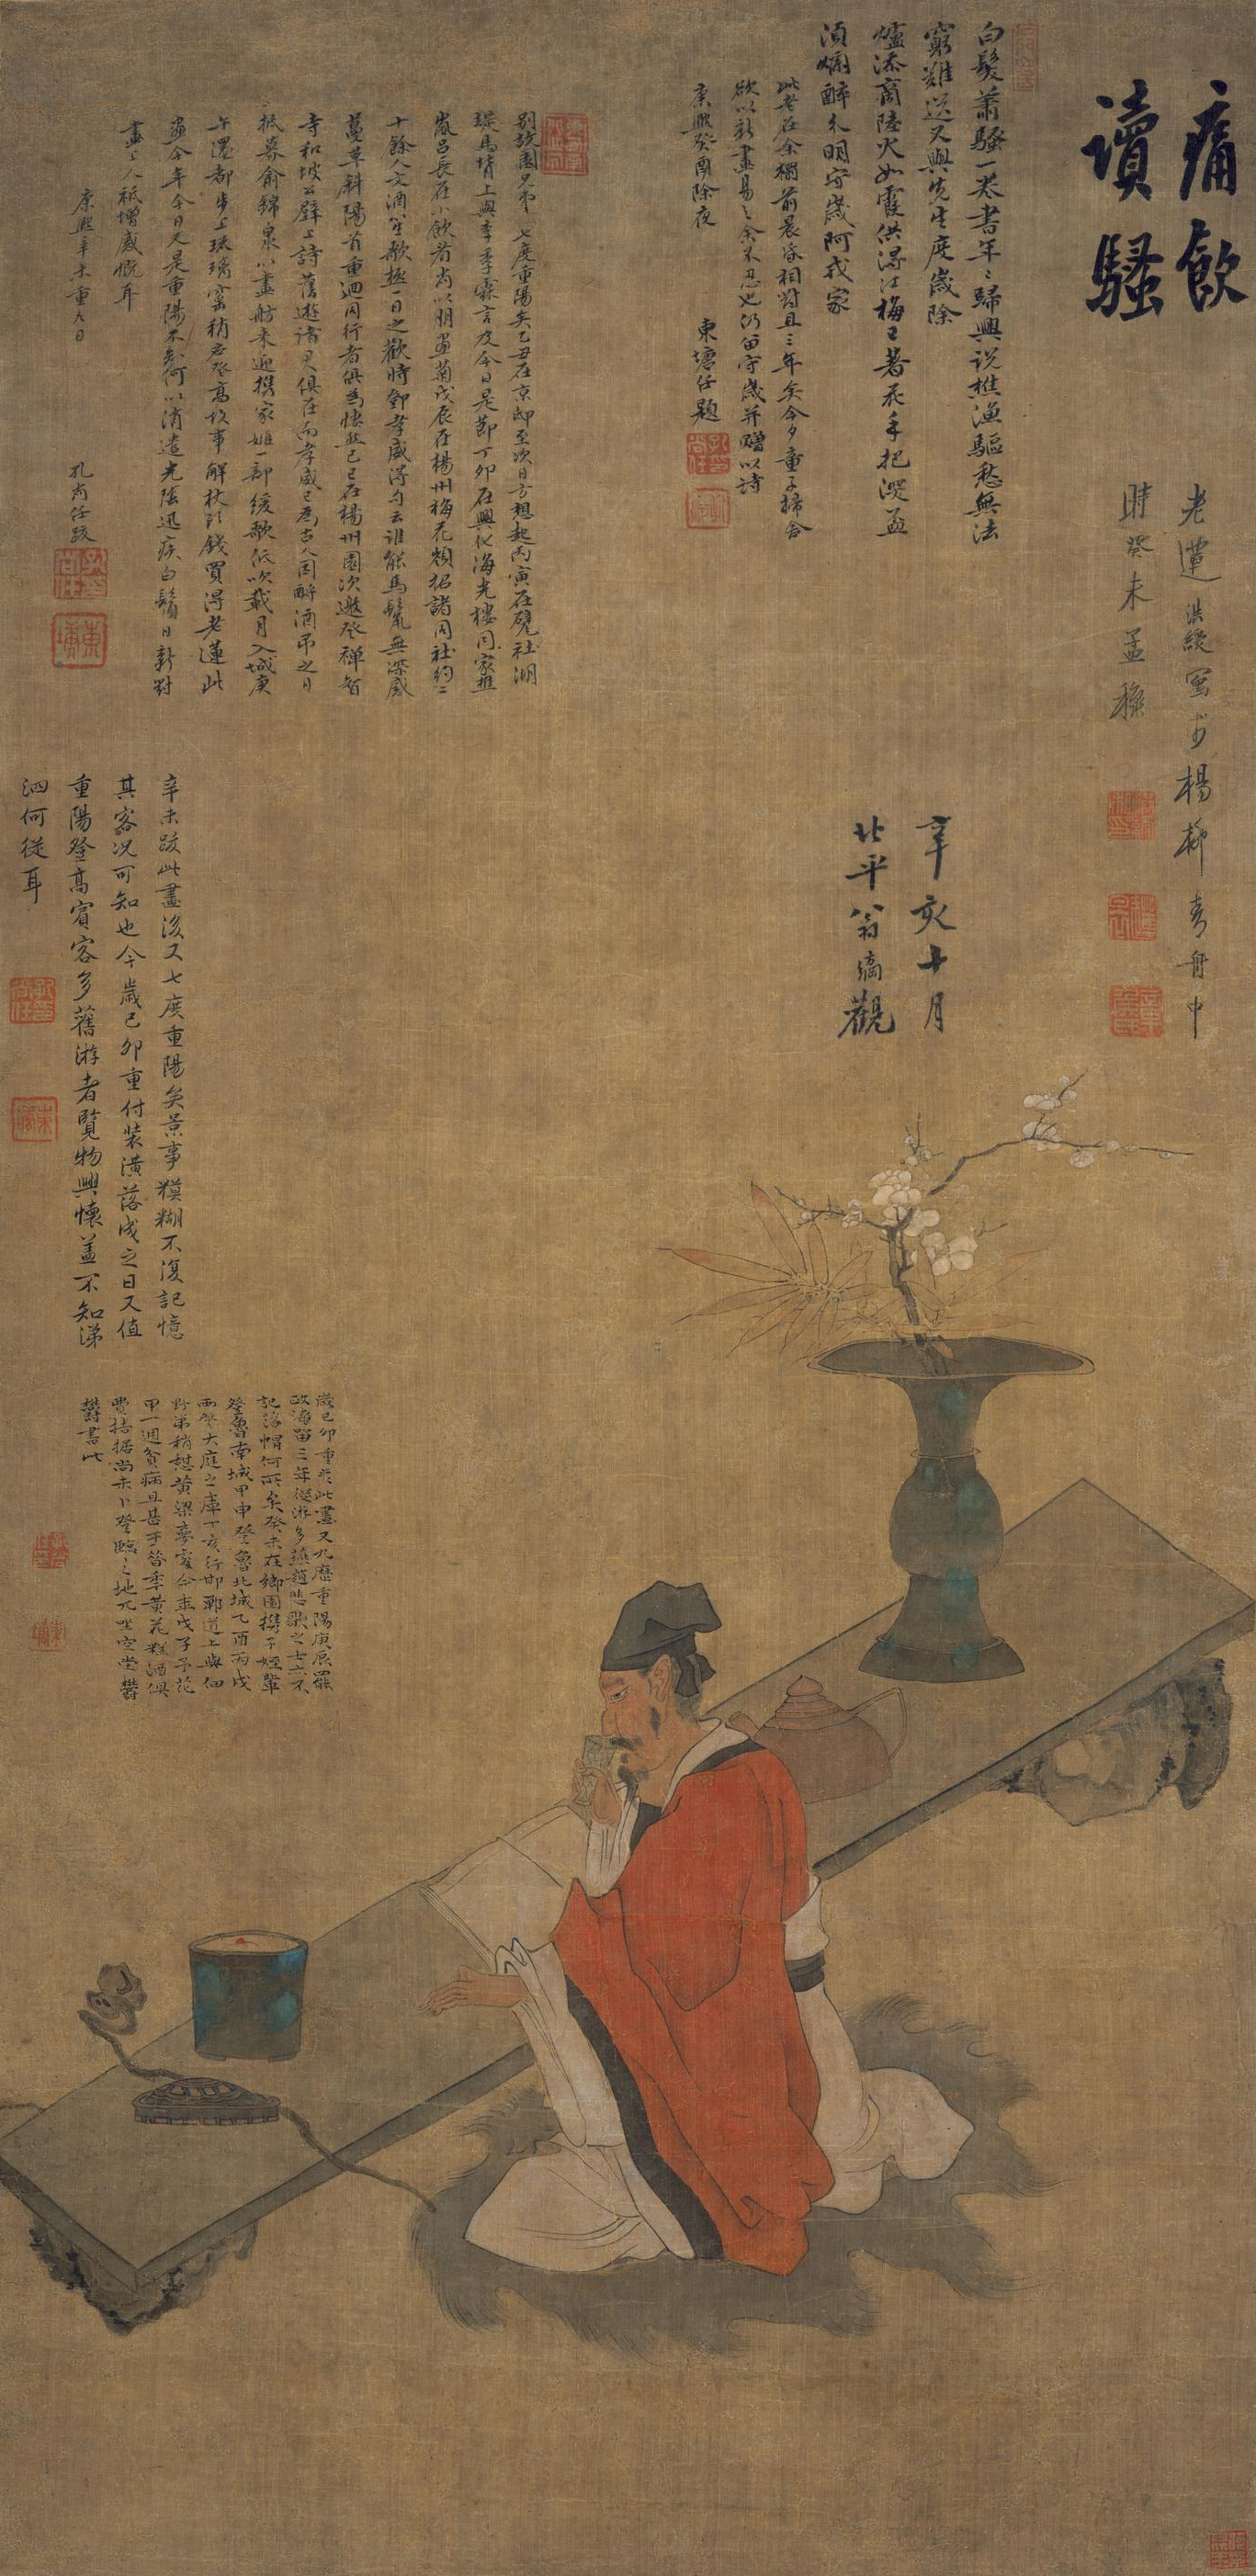 痛飲
讀騷
老蓮洪綬寫于楊柳青舟中
時癸未孟秋
白髮蕭騷一卷書年〻歸興說樵漁驅愁無法
窮難送又與先生度歲除
爐添商陸火如霞供得江梅已著花手把深盃
須爛醉分明守歲阿戎家
此老在余橱前晨昏相對且三年矣今夕童子掃舍
欲以新畫易之余不忍也仍留守歲并贈以詩
康熙癸酉除夜 東塘任題
別故園兄弟七度重陽矣乙丑在京邸至次日方想起丙寅在甓社湖
堤馬背上與李季霖言及今日是節丁卯在興化海光樓同家樵
嵐呂長在小飲者尚以朋畫菊戊辰在楊州梅花嶺招諸同社約二
十餘人文酒笙歌極一日之歡時鄧孝威得句云誰能馬鬣無深感
蔓草斜陽首重迴同行者俱為悽然己巳在楊州園次邀登禪智
寺和坡公壁上詩舊遊諸君俱在而孝威已為古人因酹酒弔之日
抵暮俞錦泉以畫舫來迎携家姬一部緩歌低吹載月入城庚
午還都步上琉璃窰稍應登高故事解杖頭錢買得老蓮此
畫今年今日又是重陽不知何以消遣光陰迅疾白鬚日新對
畫上人秖增感慨耳
康熙辛未重九日 孔尚任跋
辛亥十月
北平翁 觀
辛未跋此畫後又七度重陽矣景事糢糊不復記憶
其客况可知也今歲己卯重付裝潢落成之日又值
重陽登高賓客多舊游者覧物興懷蓋不知涕
泗何從耳
歲己卯重裝此畫又九歷重陽庚辰罷
政淹留三年從游多燕趙悲歌之士亦不
記落帽何所矣癸未在鄉園携子姪輩
登魯南城甲申登魯北城乙酉丙戌
兩登大庭之庫丁亥行邯鄲道上與佃
野弟稍憇黄梁夢處今年戊子予花
甲一週貧病且甚于昔季黄花濁酒俱
費拮据尚未卜登臨之地兀坐空堂鬱
鬱書此